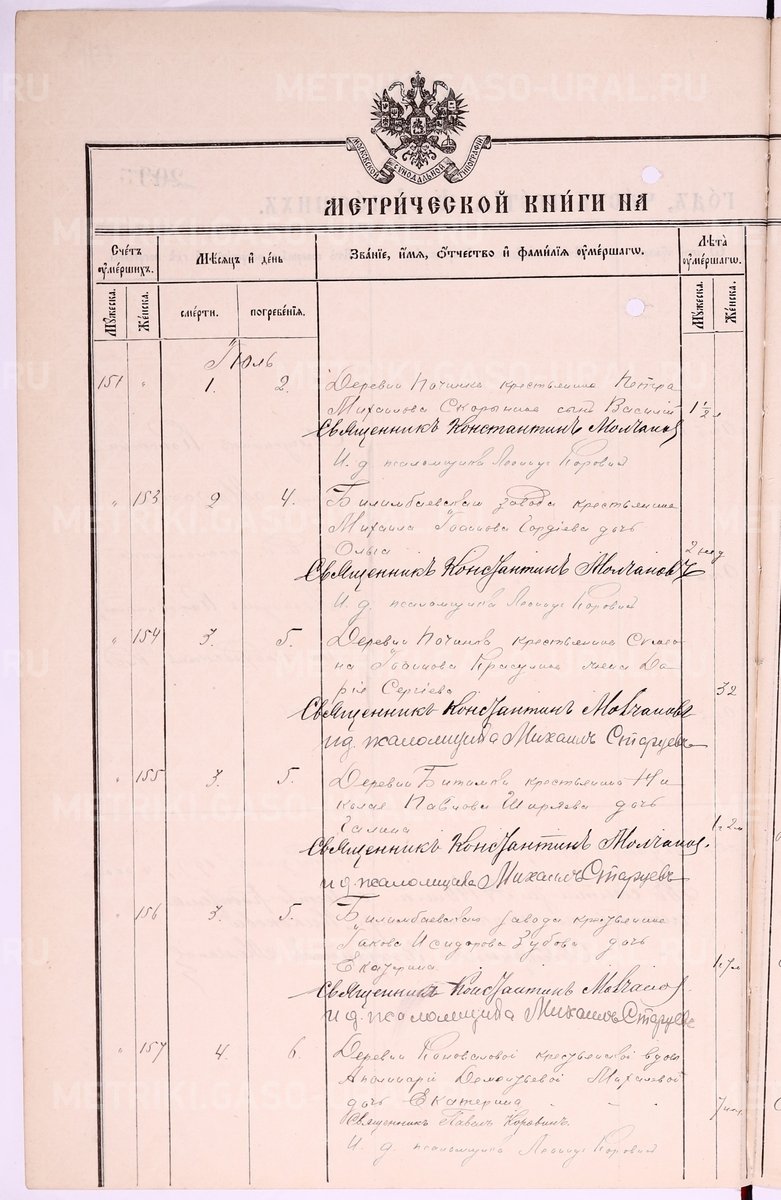 METRIKI.GASO-URAL.RU
МОСКОВСКОЙ СѴНОДАЛЬНОЙ ТИПОГРАФІИ
МЕТРИ́ЧЕСКОЙ КНИ́ГИ НА
Сче́тъ ᲂумéршихъ.
Мѣ́сѧцъ и҆ де́нь
Зва́нїе, и҆́мѧ, ѻ҆́тчество и҆ фами́лїѧ ᲂуме́ршагѡ.
Лѣ́та ᲂуме́ршагѡ.
Мꙋ́жеска.
Же́нска.
сме́рти.
погребе́нїѧ.
Мꙋ́жеска.
Же́нска.
Іюль
151 " 1. 2. Деревни Починка крестьянина Петра
Михаилова Скорынина сынъ Василій 1 1/2 л
Священникъ Константинъ Молчановъ
И. д. псаломщика Леонидъ Коровинъ
" 153 2 4. Билимбаевскаго завода крестьянина
Михаила Іоаннова Гордѣева дочь
Ольга 2 нед
Священникъ Константинъ Молчановъ
И. д. псаломщика Леонидъ Коровинъ
" 154 3. 5. Деревни Починка крестьянина Симео-
на Іоаннова Красулина жена Да-
рія Сергіева 32
Священникъ Константинъ Молчановъ
и д. псаломщика Михаилъ Старцевъ
" 155 3. 5. Деревни Битимки крестьянина Ни
колая Павлова Ширяева дочь
Галина 1 г 2 м
Священникъ Константинъ Молчановъ.
и д псаломщика Михаилъ Старцевъ
" 156 3. 5. Билимбаевскаго завода крестьянина
Іакова Исидорова Зубова дочь
Екатерина 1 г 7 м
Священникъ Константинъ Молчановъ.
и д. псаломщика Михаилъ Старцевъ
" 157 4. 6. Деревни Коноваловой крестьянской вдовы
Аполинаріи Дементьевой Михалевой
дочь Екатерина
Священникъ Павелъ Коровинъ.
И. д. псаломщика Леонидъ Коровинъ